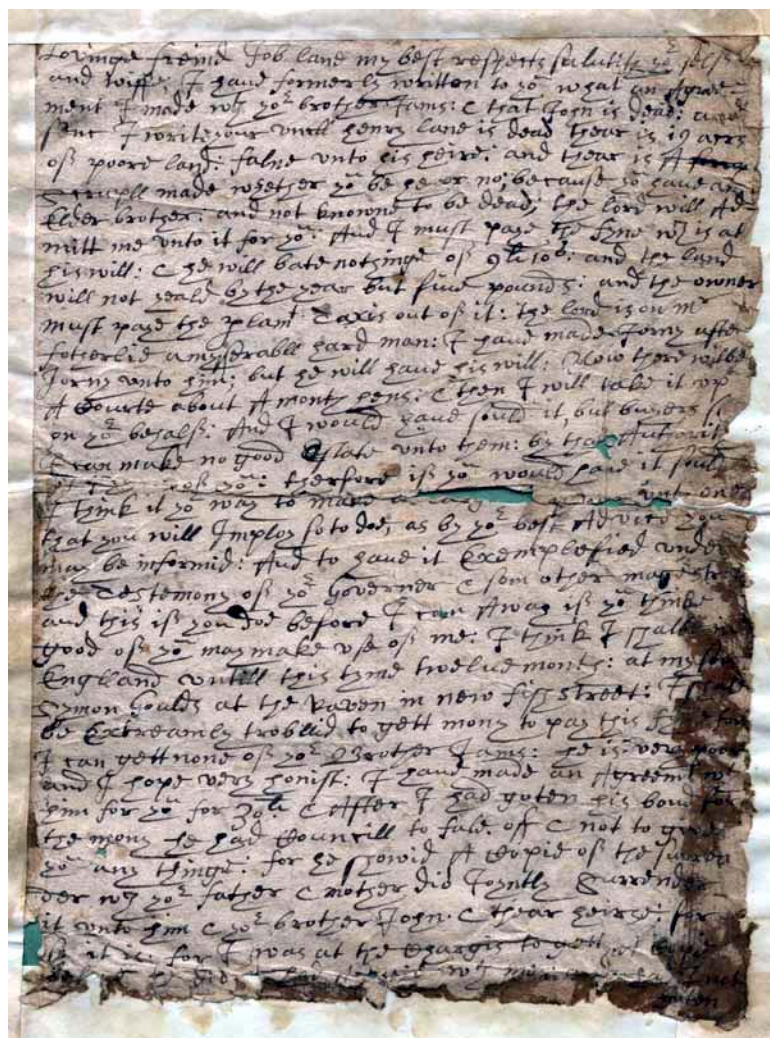 Lovinge freind Job lane my best respects salutith yor selfe
and wiffe; I haue formerly written to yo what an Agree-
ment I made wth yor brother Jams: & that John is dead:
sinc I write your unckll henry lane is dead thear is 19 acrs
of poore land: falne unto his heire: and thear is A
scrupll made whether yo be he or no; because yo haue an
Elder brother: and not knowne to be dead; the lord will Ad-
mitt me unto it for yo: And I must paye the fyne wch is at
his will: & he will bate nothinge of 9li 10s: and the land
will not yeald by the year but fiue pounds: and the owner
must paye the Taxis out of it: the lord is on mr
fotherlie a myserabll hard man: I haue made Jorny after
Jorny unto him; but he will haue his will: Now there wilbe
A Courte about A month hens: & then I will take it up
on yor behalfe: And I would haue sould it, but buyers
I can make no good Estate unto them: by that Authority
yo: therfore if yo would haue it sould
I think it yor way to make unto one
that you will Imploy so to doe, as by yor best Advice you
may be informid: And to haue it Exemplefied under
the Testemony of yor Governer & som other magestrat
and this if you doe before I can Away if yo thinke
good of yo may make use of me: I think I shalbe in
England untill this tyme twelue month: at my
Symon Goulds at the Raven in new fish street: I shall
be Extreamly trobllid to gett mony to pay this fyne for
I can gett none of yor Brother Jams: he is very poore
and I hope very honist: I haue made an Agreemt wth
him for yo for 30li & After I had goten his bond for
the mony he had Councill to fale off & not to giue
yo any thinge: for he showid A Copie of the surren
der wch yor father & mother did Joyntly Surrender
it unto him & yor brother John & thear heirse: for
it is: for I was at the Chargis to gett Copie
goten